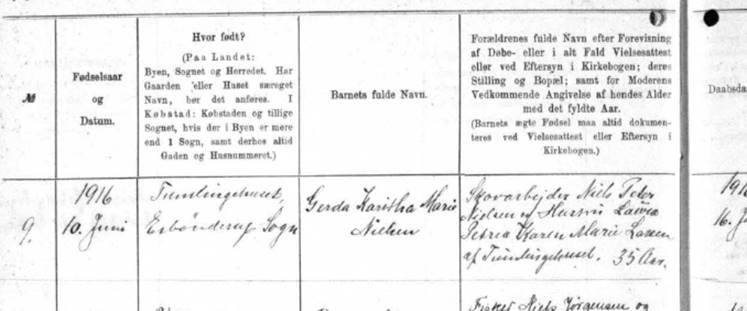 №
Fødselsaar
og
Datum.
Hvor født?
(Paa Landet:
Byen, Sognet og Herredet. Har
Gaarden eller Huset særeget
Navn, bør det anføres. I
Købstad: Købstaden og tillige
Sognet, hvis der i Byen er mere
end 1 Sogn, samt derhos altid
Gaden og Husnummeret.)
Barnets fulde Navn.
Forældrenes fulde Navn efter Forevisning
af Døbe- eller i alt Fald Vielsesattest
eller ved Eftersyn i Kirkebogen; deres
Stilling og Bopæl; samt for Moderens
Vedkommende Angivelse af hendes Alder
med det fyldte Aar.
(Barnets ægte Fødsel maa altid dokumen-
teres ved Vielsesattest eller Eftersyn i
Kirkebogen.)
Daabsda
9.
1916
10. Juni
Tumlingehuset,
Esbønderup Sogn
Gerda Karitha Marie
Nielsen
Skovarbejder Niels Peter
Nielsen og Hustru
Petrea Karen Marie Larsen
af Tumlingehuset. 35 Aar.
191
16. J
Fisker Niels Jørgensen og